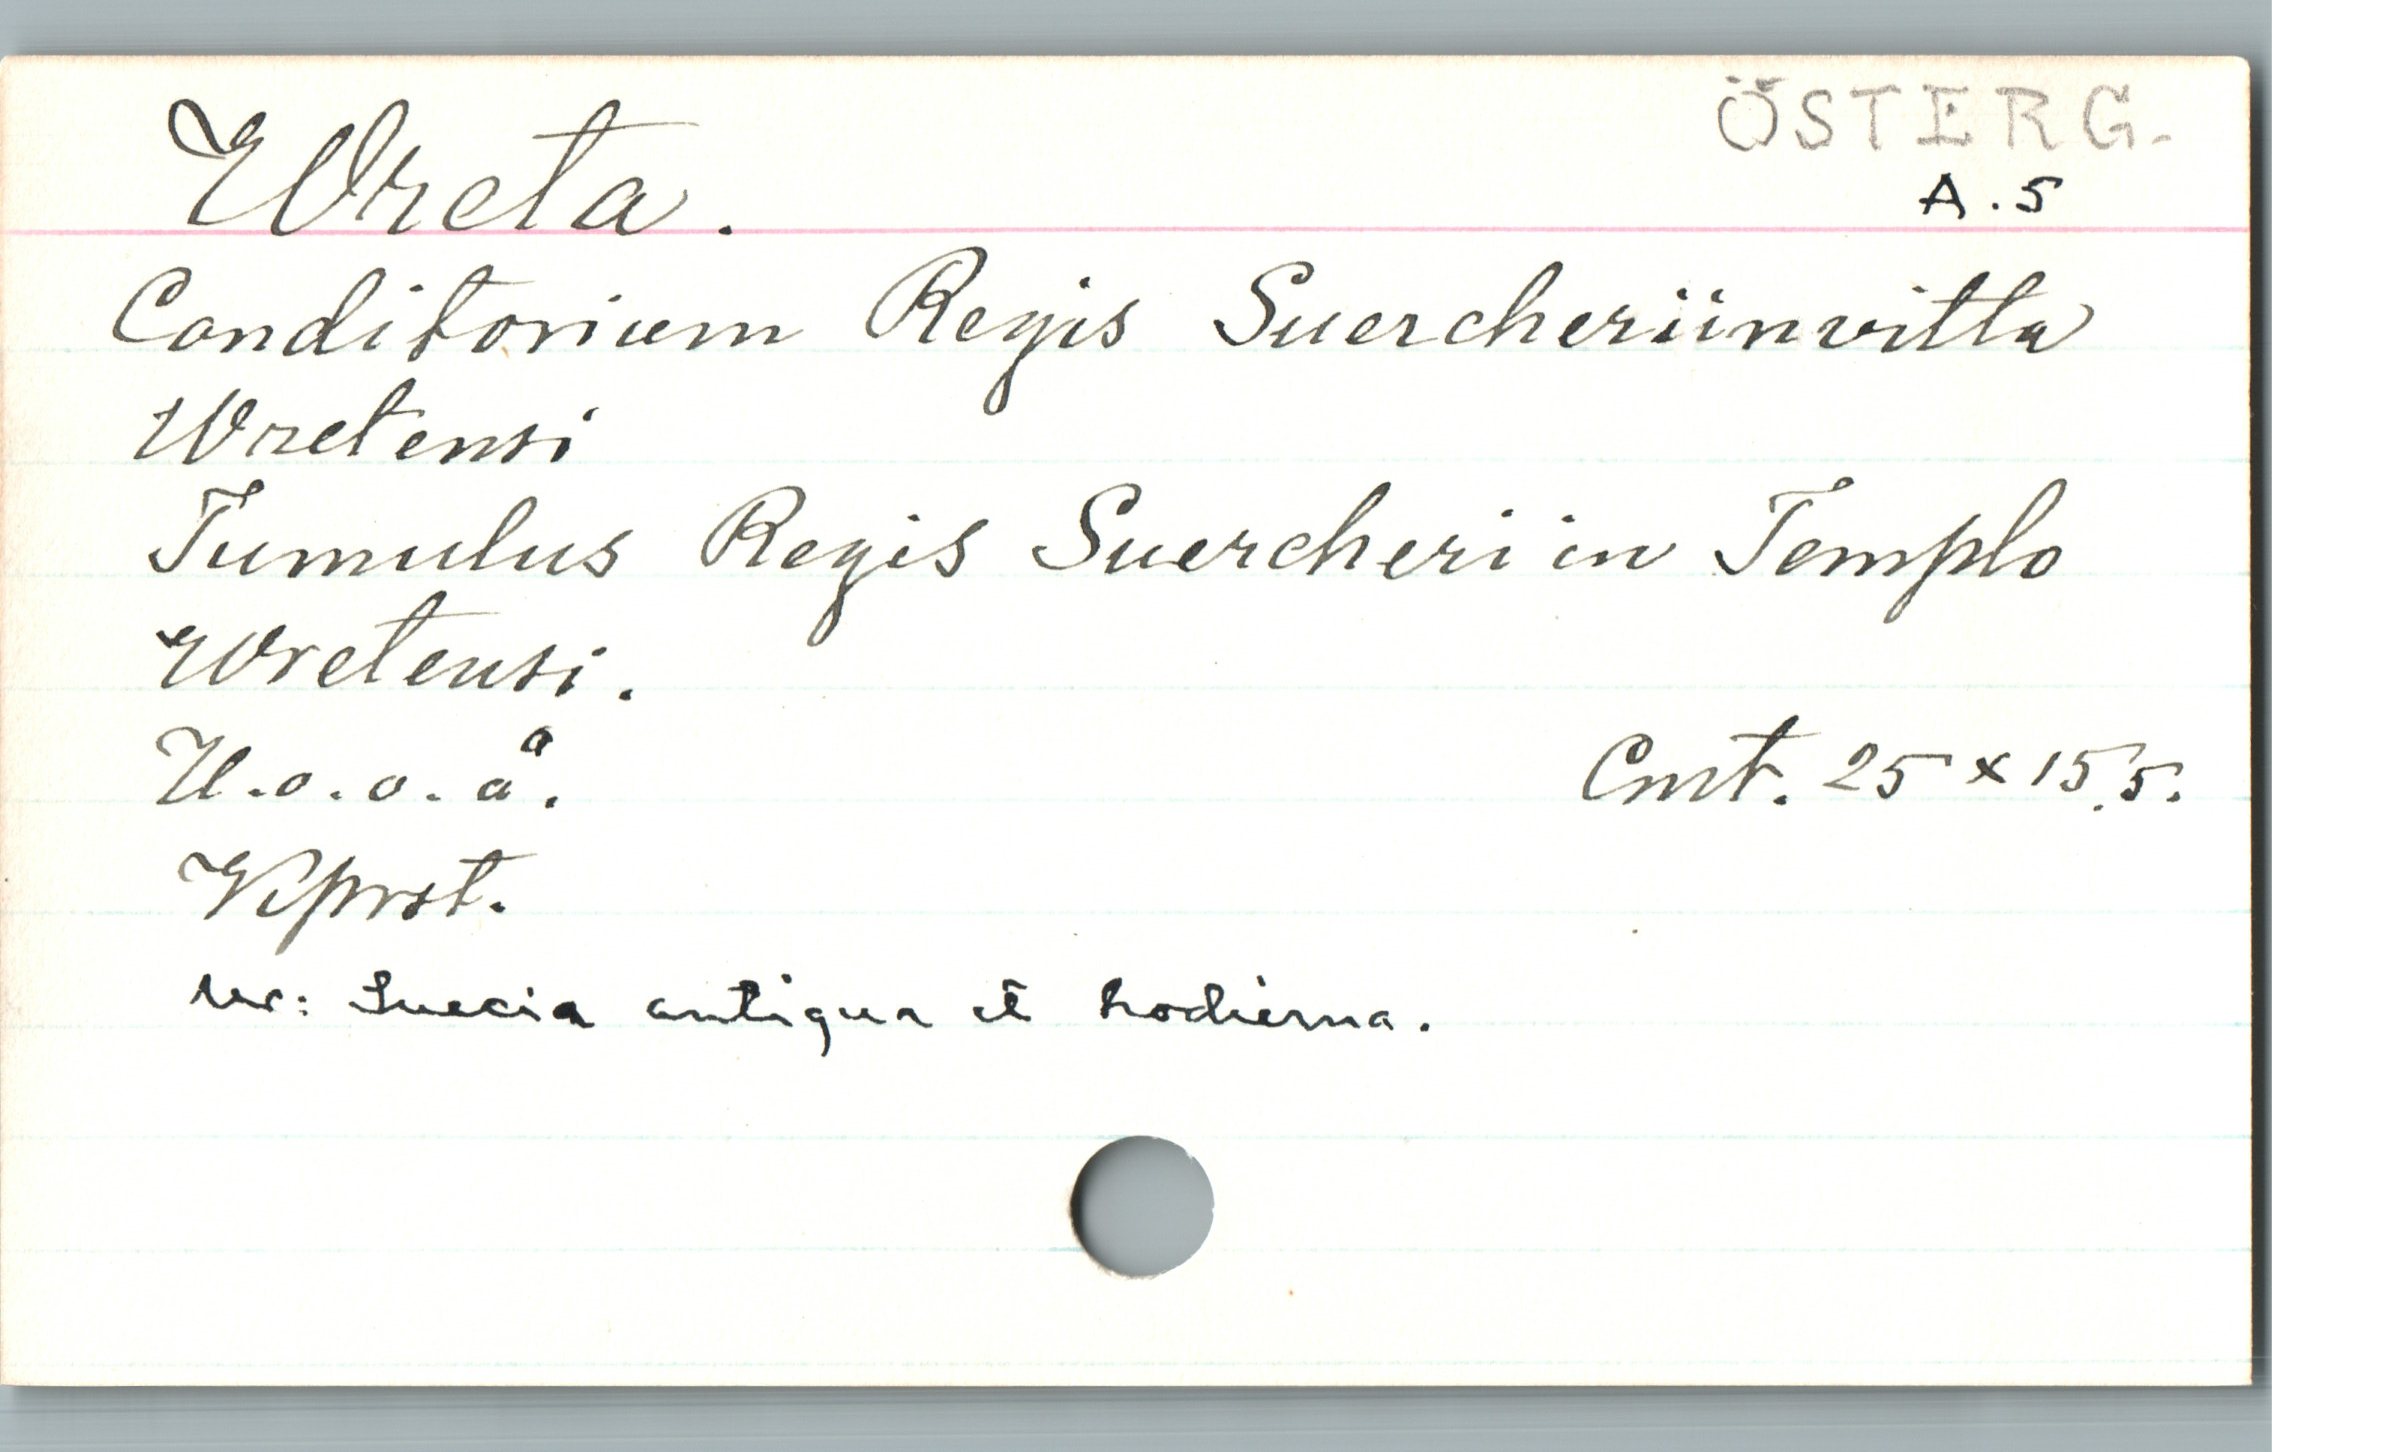 ÖSTERG.
Wreta.
A.5
Conditorium Regis Suercheri in vitta
Wretensi
Tumulus Regis Suercheri in Templo
Wretensi.
U.o.o.å. Cmt. 25 x 15,5.
Kprst.
ur: Suecia antiqua et hodierna.